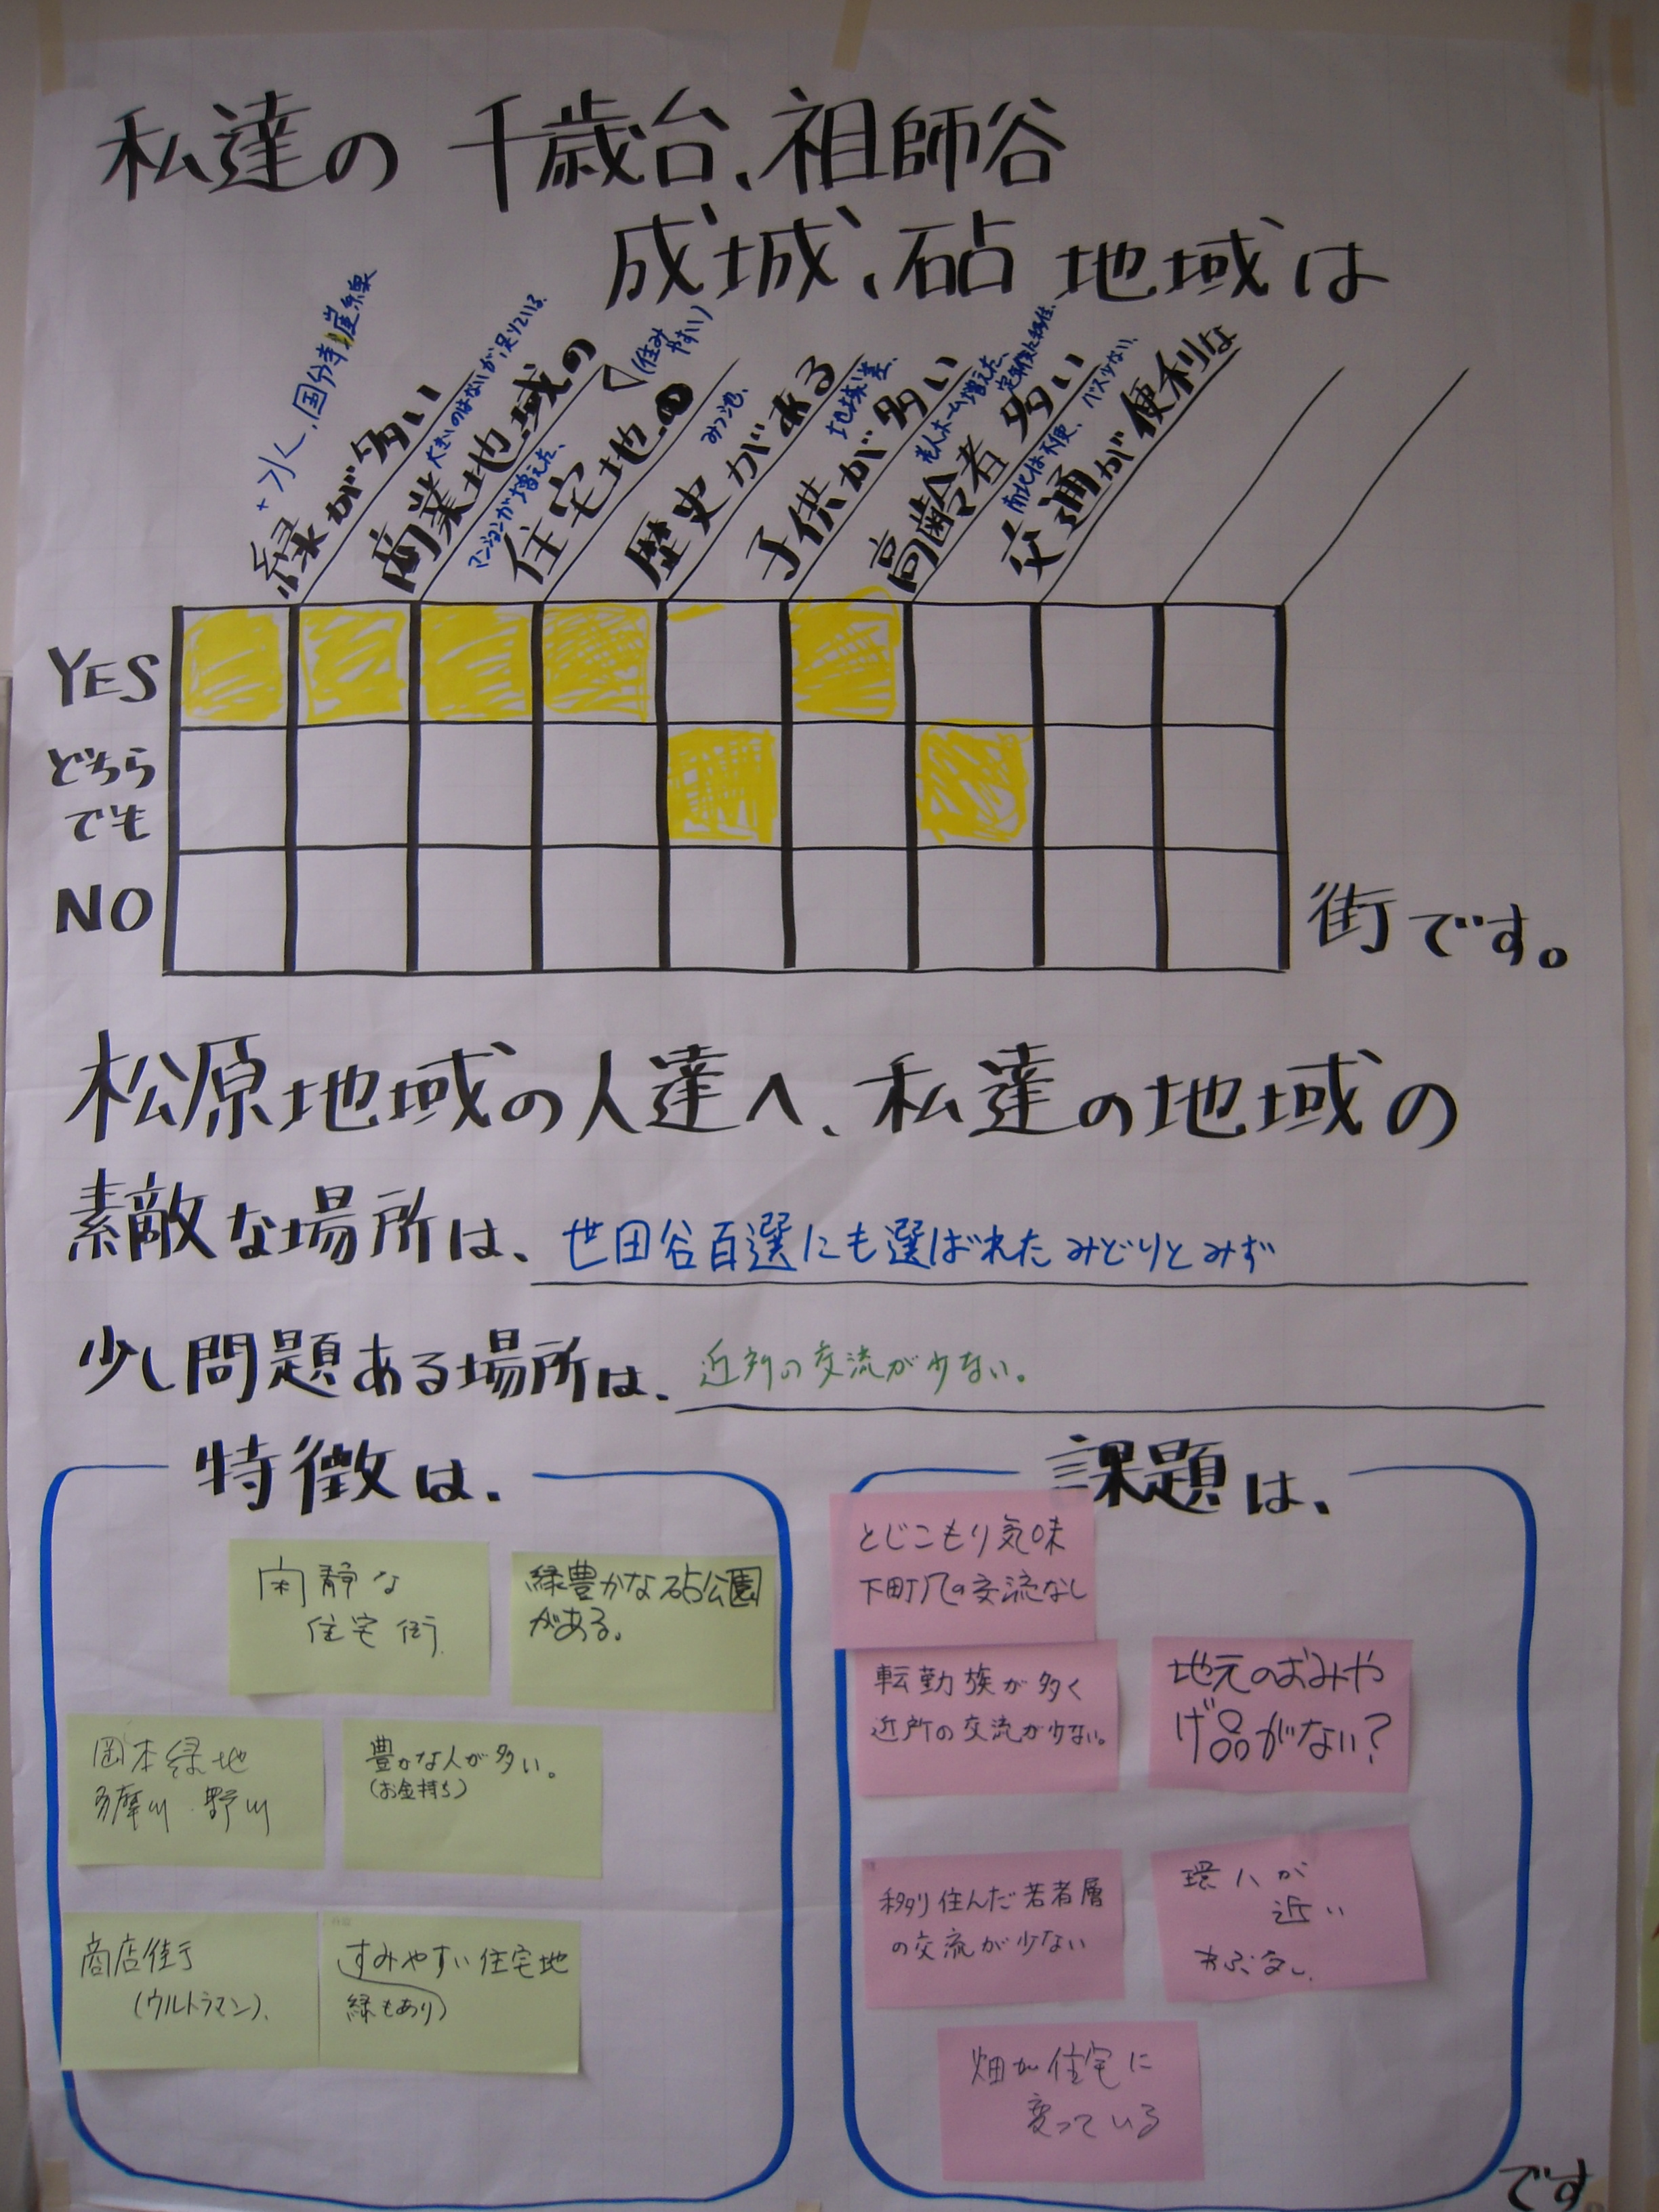 私達の 千歳台、祖師谷
成城、砧 地域は
+水く、国分寺崖線
緑が多い
大きいのはないが、足りている。
商業地域の
マンションが増えた、
(住みやすい)
住宅地の
みつ池、
歴史がある
地域差、
子供が多い
老人ホーム増えた、
定年後に移住、
高齢者 多い
南北は不便、バス少ない、
交通が便利な
YES
どちら
でも
NO
街です。
松原地域の人達へ、私達の地域の
素敵な場所は、世田谷百選にも選ばれたみどりとみず
少し問題ある場所は、近所の交流が少ない。
特徴は、
閑静な
住宅街
緑豊かな砧公園
がある。
岡本緑地
多摩川 野川
豊かな人が多い。
(お金持ち)
商店街
(ウルトラマン)、
すみやすい住宅地
緑もあり)
課題は、
とじこもり気味
下町風の交流なし
転勤族が多く
近所の交流が少ない。
地元のおみや
げ品がない?
移り住んだ若者層
の交流が少ない
環八が
近い
あぶない
畑が住宅に
変っている
です。